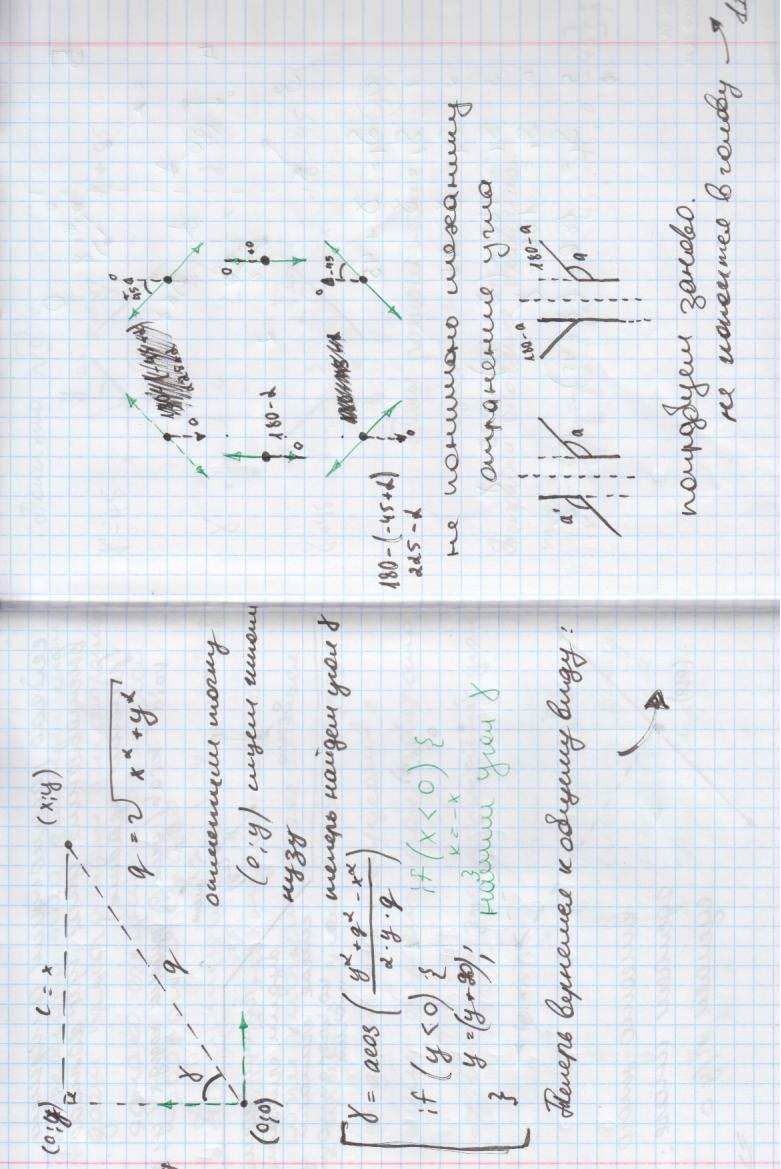 (0;y) c = x (x;y)
q = √x² + y²
γ q
(0;0)
отметим точку
(0;y) ищем гипотенузу
теперь найдем угол γ
γ = acos (y² + q² - x² / 2·y·q)
if (y<0) {
y = (y+90);
}
if (x<0) {
x = -x
}
найдем угол γ
Теперь вернемся к общему виду:
0
45
0
180-2
0
0
+0
0
0
2-45
180-(-45+2)
225-2
не понимаю механику
отражения угла
a' a 180-a 180-a a
попробуем заново.
не в голову →